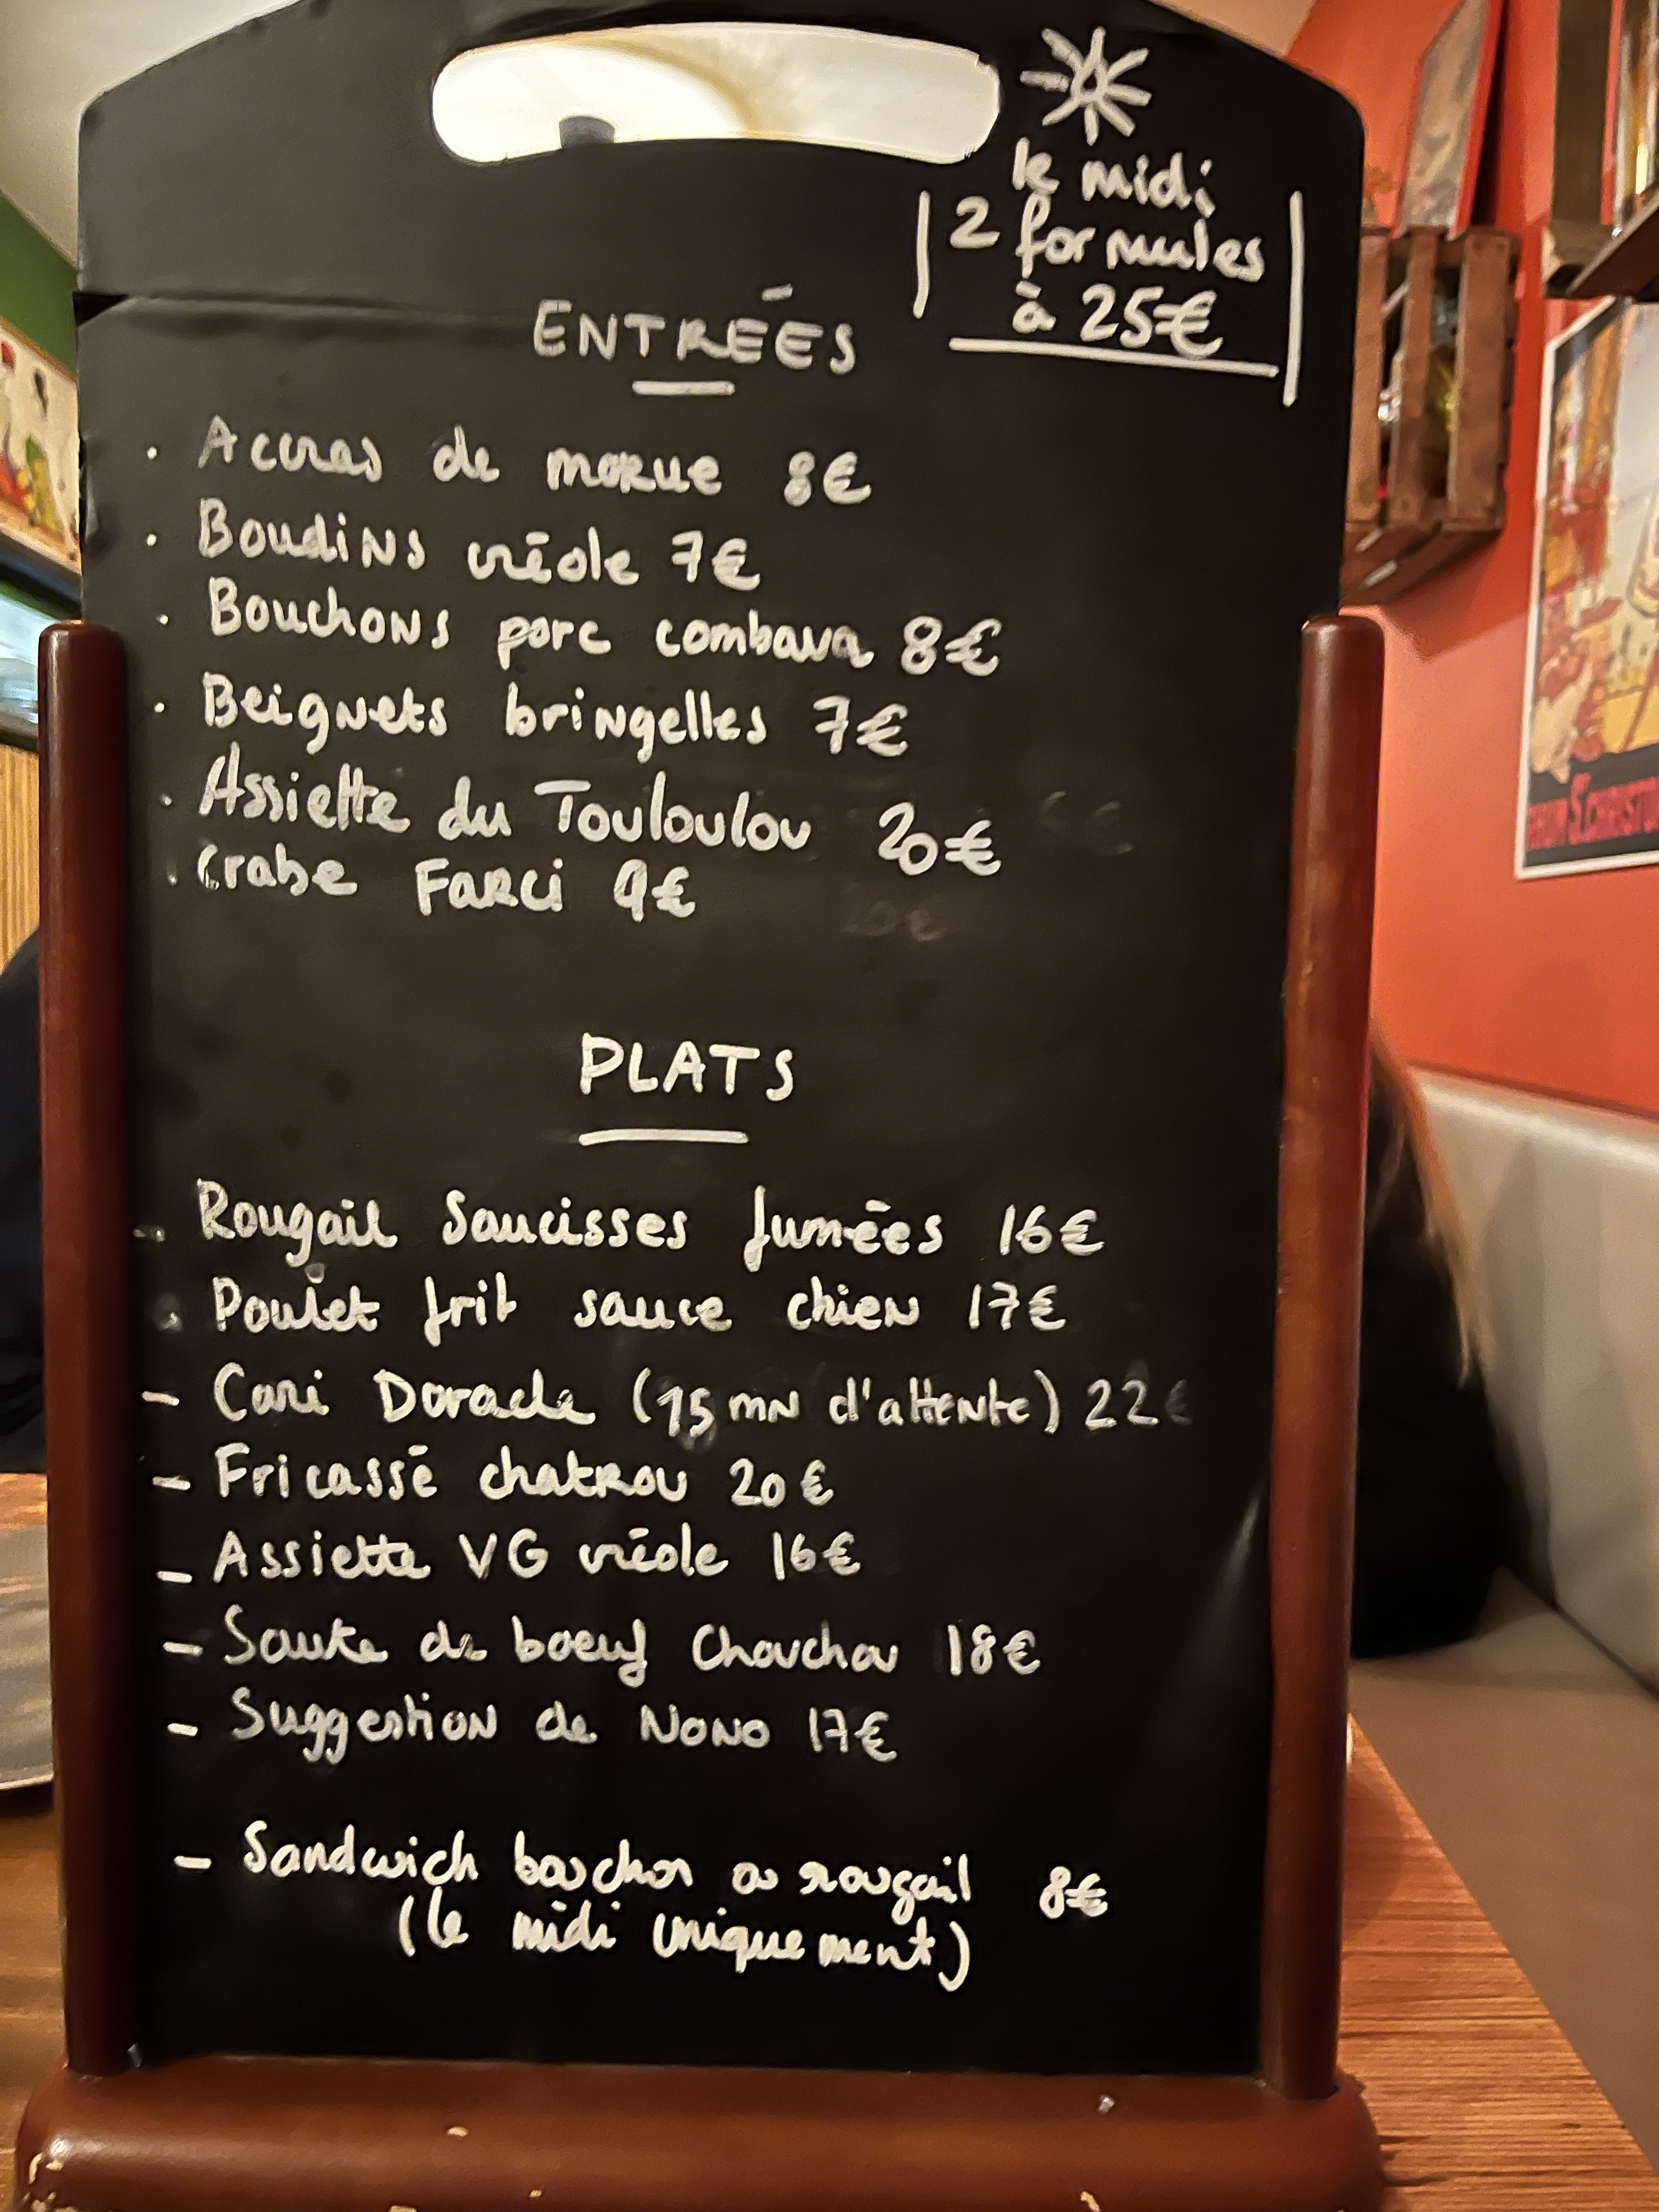 le midi
2 formules
à 25€
ENTRÉES
· Accras de morue 8€
· Boudins créole 7€
· Bouchons porc combava 8€
· Beignets bringelles 7€
· Assiette du Touloulou 20€
· Crabe Farci 9€
PLATS
- Rougail Saucisses fumées 16€
· Poulet frit sauce chien 17€
- Cari Dorade (15 mn d'attente) 22€
- Fricassé chatrou 20€
- Assiette VG créole 16€
- Saute de boeuf Chouchou 18€
- Suggestion de Nono 17€
- Sandwich bouchon ou rougail 8€
(le midi uniquement)